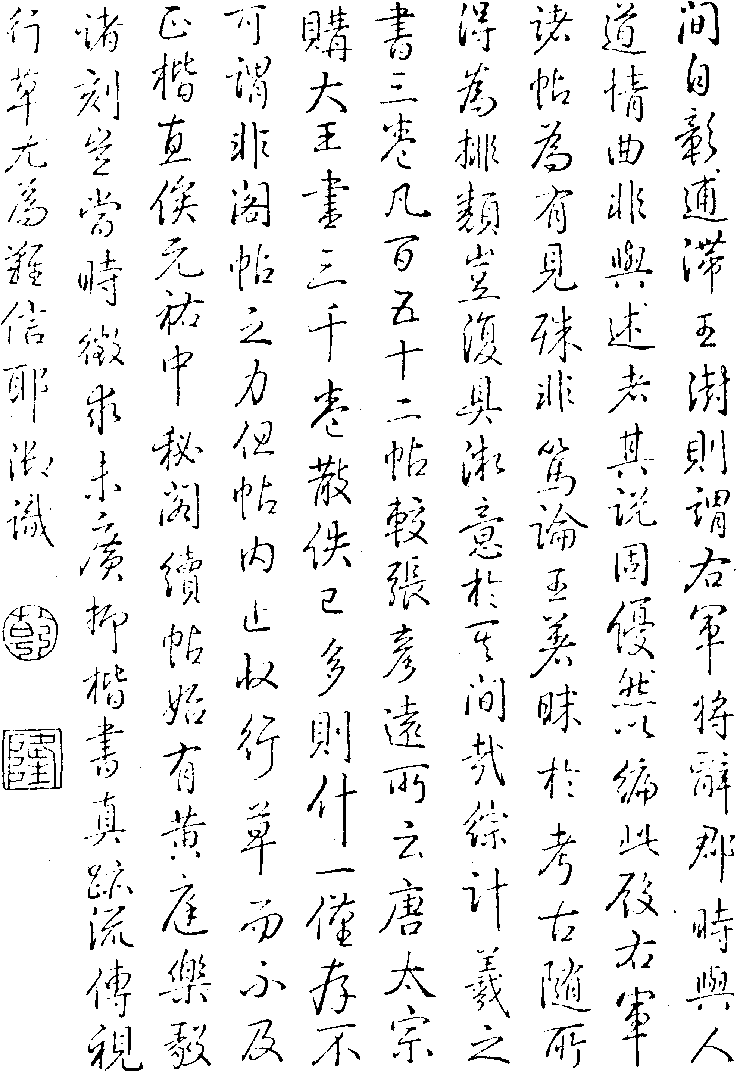 间自彰逋滞王澍則謂右軍将辭郡時與人
道情曲非與述者其說固優然以编此段右軍
諸帖為有見殊非篤論王著昧於考古随所
得為排類豈復具㴲意於其间哉綜计羲之
書三卷凡百五十二帖較張彥遠所云唐太宗
購大王書三千卷散佚已多則什一僅存不
可謂非阁帖之力但帖内止收行草而不及
正楷直俟元祐中秘阁續帖始有黄庭樂毅
諸刻豈當時徵求未廣抑楷書真跡流傳視
行草尤為難信耶御識
隆